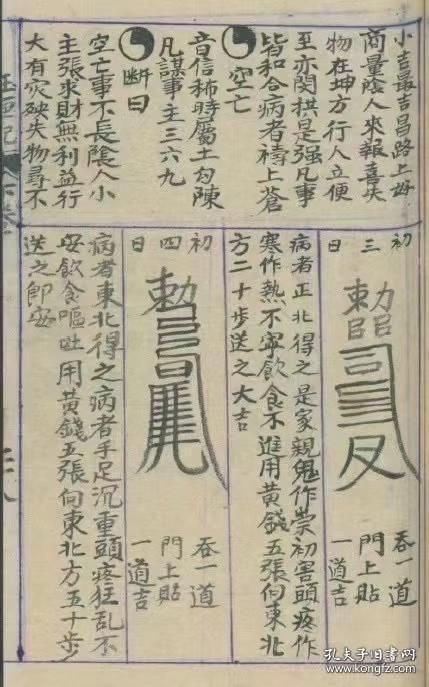 小吉最吉昌路上好
商量陰人來報喜失
物在坤方行人立便
至亦閔栱是强凡事
皆和合病者禱上蒼
空亡
音信稀時屬土勾陳
凡謀事主三六九
斷曰
空亡事不長陰人小
主張求財無利益行
大有灾殃失物尋不
初三日
勅
吞一道
門上貼
一道吉
病者正北得之是家親鬼作祟初害頭疼作
寒作熱不寧飲食不進用黃錢五張向東北
方二十步送之大吉
初四日
勅
吞一道
門上貼
一道吉
病者東北得之病者手足沉重頭疼狂亂不
安飲食嘔吐用黃錢五張向東北方五十步
送之即安
玉匣記
孔夫子旧书网
www.kongfz.com